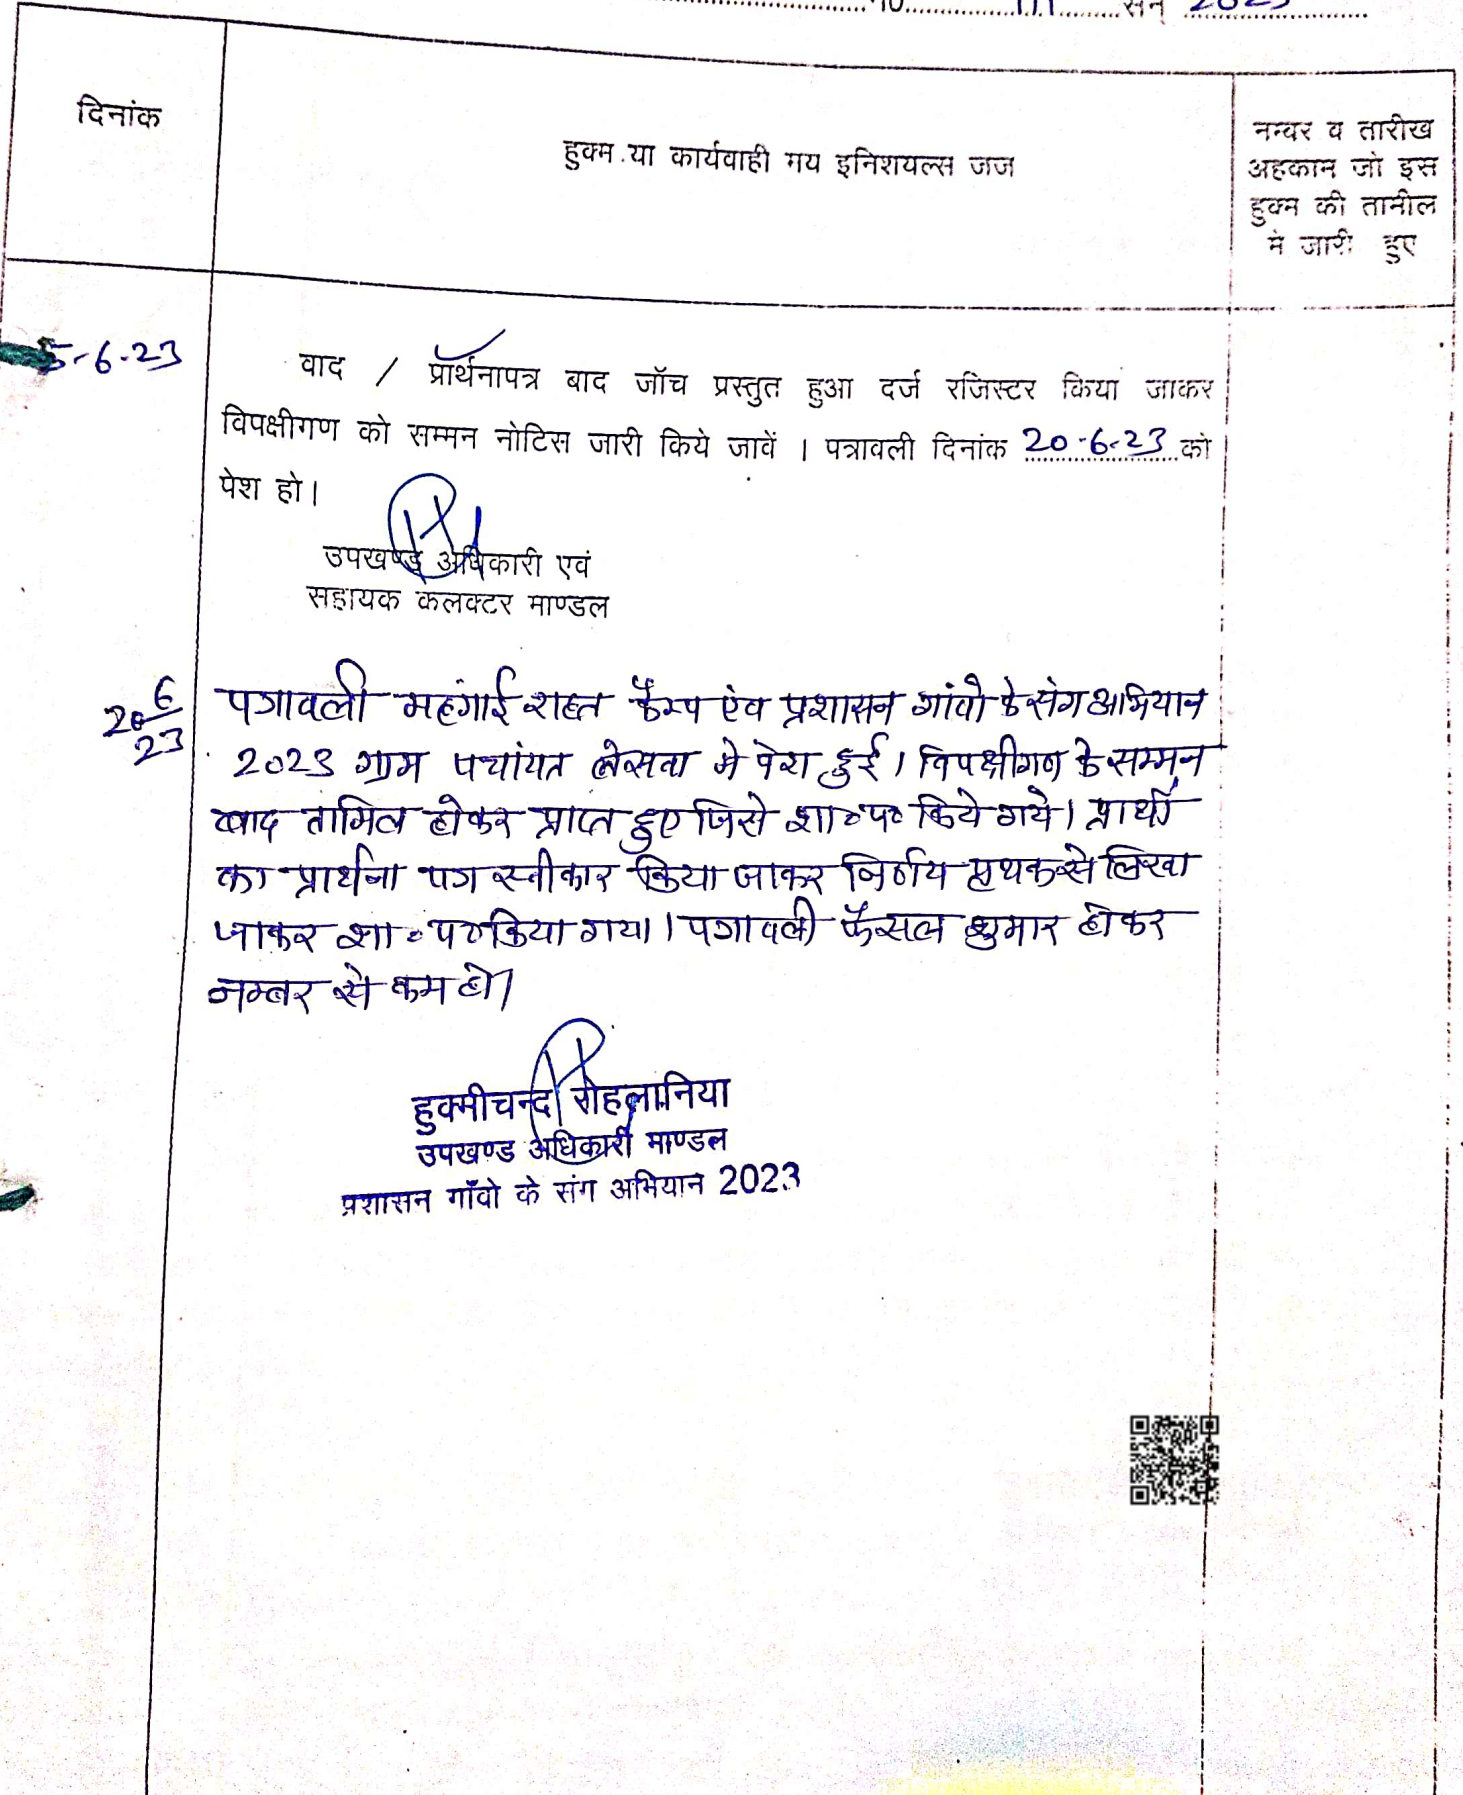 सन् 2023
दिनांक
हुक्म या कार्यवाही मय इनिशयल्स जज
नम्वर व तारीख
अहकाम जो इस
हुक्म की तामील
मे जारी हुए
5-6-23
वाद / प्रार्थनापत्र बाद जॉच प्रस्तुत हुआ दर्ज रजिस्टर किया जाकर
विपक्षीगण को सम्मन नोटिस जारी किये जावें । पत्रावली दिनांक 20-6-23 को
पेश हो।
उपखण्ड अधिकारी एवं
सहायक कलक्टर माण्डल
20/6/23
पत्रावली महंगाई राहत कैम्प एंव प्रशासन गांवो के संग अभियान
2023 ग्राम पचांयत लेसवा मे पेश हुई। विपक्षीगण के सम्मन
बाद तामिल होकर प्राप्त हुए जिसे शा॰प॰ किये गये। प्रार्थी
का प्रार्थना पत्र स्वीकार किया जाकर निर्णय पृथक से लिखा
जाकर शा॰प॰ किया गया। पत्रावली फैसल शुमार होकर
नम्बर से कम हो।
हुक्मीचन्द रोहलानिया
उपखण्ड अधिकारी माण्डल
प्रशासन गॉंवो के संग अभियान 2023